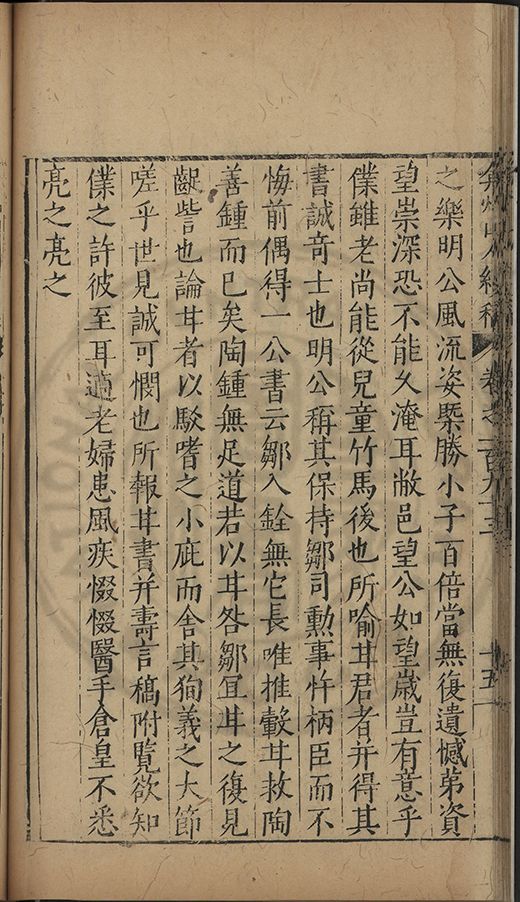 弇州山人續稿 卷之一百九十三 十五
之樂明公風流姿槩勝小子百倍當無復遺憾弟資
望崇深恐不能久淹耳敝邑望公如望歲豈有意乎
僕雖老尚能從兒童竹馬後也所喻玨君者并得其
書誠奇士也明公稱其保持鄒司勳事忤柄臣而不
悔前偶得一公書云鄒入銓無它長唯推轂玨救陶
善鍾而已矣陶鍾無足道若以玨咎鄒冝玨之復見
齮訾也論玨者以駮嗜之小疵而舍其狥義之大節
嗟乎世見誠可憫也所報玨書并壽言稿附覽欲知
僕之許彼至耳適老婦患風疾惙惙醫手倉皇不悉
亮之亮之